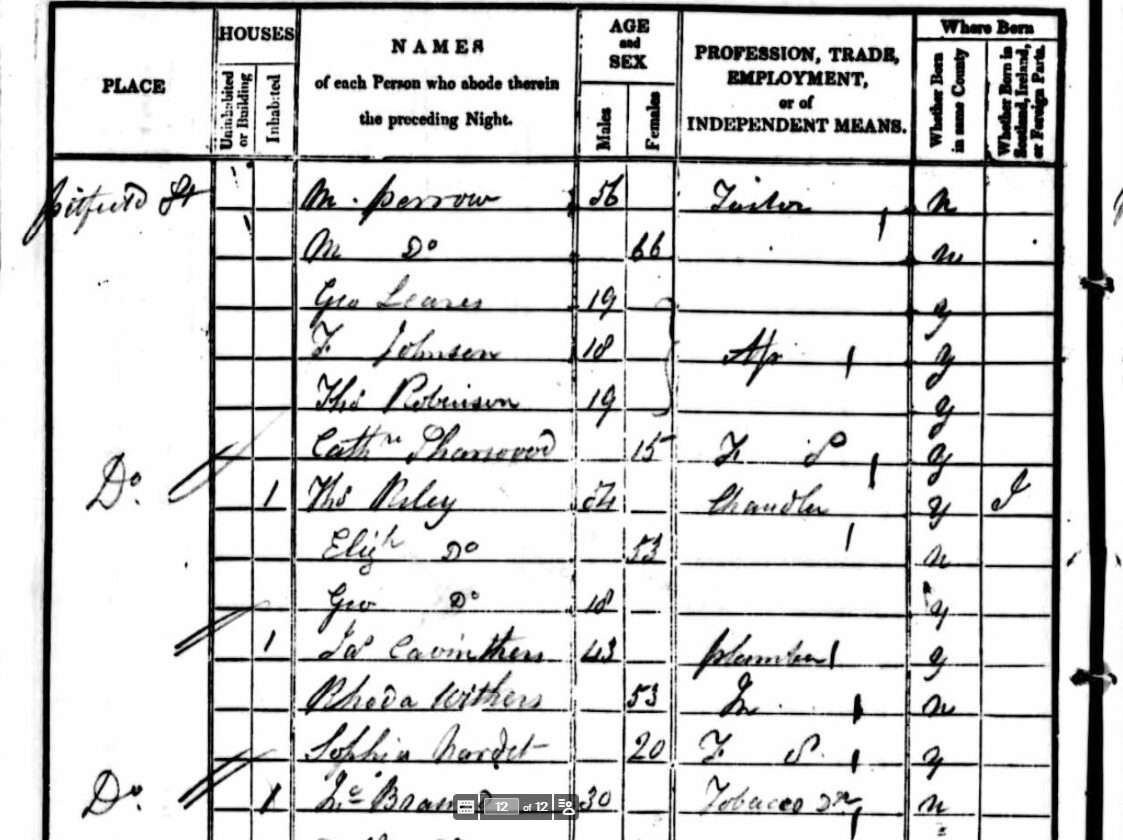 PLACE
HOUSES
Uninhabited or Building
Inhabited
NAMES
of each Person who abode therein
the preceding Night.
AGE
and
SEX
Males
Females
PROFESSION, TRADE,
EMPLOYMENT,
or of
INDEPENDENT MEANS.
Where Born
Whether Born in same County
Whether Born in Scotland, Ireland, or Foreign Parts.
Pitfield St M. Perrow 56 Tailor n
M Do 66 n
Geo 19 y
F Johnson 18 Ap y
Thos Robinson 19 y
Cathn 15 F S y
Do. 1 Thos Riley 54 Chandler y I
Elizh Do 53 n
Geo Do 18 y
1 Jas 43 plumber y
Rhoda Withers 53 n
Sophia 20 F S. y
Do. 1 30 Tobacco n
12 of 12